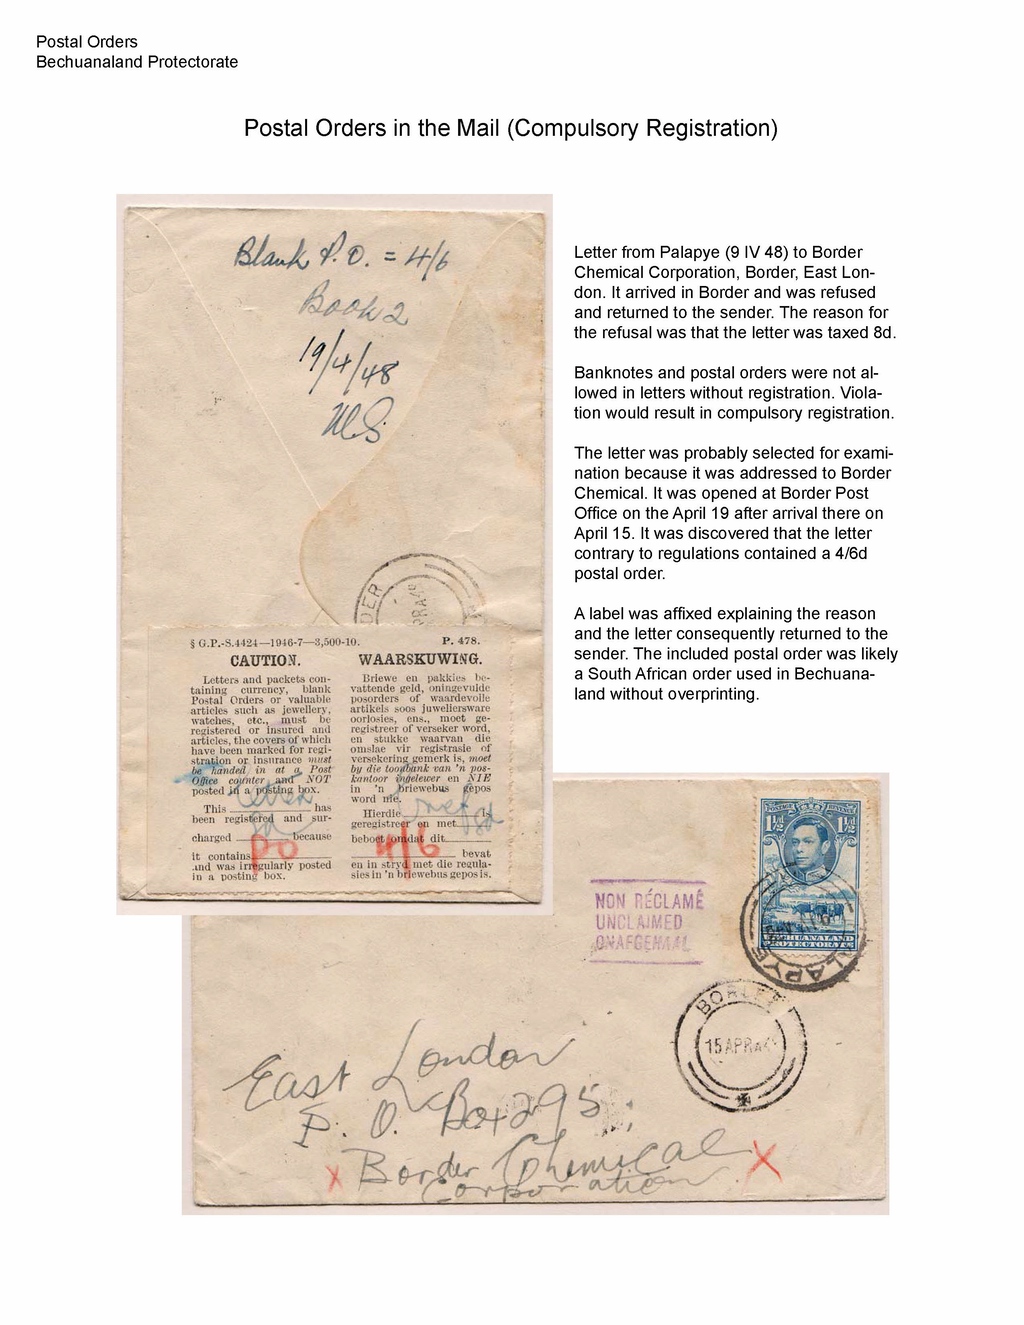 Postal Orders
Bechuanaland Protectorate
Postal Orders in the Mail (Compulsory Registration)
Blank P.O. = 4/6
Book 2
19/4/48
Letter from Palapye (9 IV 48) to Border
Chemical Corporation, Border, East Lon-
don. It arrived in Border and was refused
and returned to the sender. The reason for
the refusal was that the letter was taxed 8d.
Banknotes and postal orders were not al-
lowed in letters without registration. Viola-
tion would result in compulsory registration.
The letter was probably selected for exami-
nation because it was addressed to Border
Chemical. It was opened at Border Post
Office on the April 19 after arrival there on
April 15. It was discovered that the letter
contrary to regulations contained a 4/6d
postal order.
A label was affixed explaining the reason
and the letter consequently returned to the
sender. The included postal order was likely
a South African order used in Bechuana-
land without overprinting.
§ G.P.-S.4424—1946-7—3,500-10. P. 478.
CAUTION.
Letters and packets con-
taining currency, blank
Postal Orders or valuable
articles such as jewellery,
watches, etc., must be
registered or insured and
articles, the covers of which
have been marked for regi-
stration or insurance must
be handed in at a Post
Office counter and NOT
posted in a posting box.
This letter has
been registered and sur-
charged because
it contains PO
and was irregularly posted
in a posting box.
WAARSKUWING.
Briewe en pakkies be-
vattende geld, oningevulde
posorders of waardevolle
artikels soos juweliersware
oorlosies, ens., moet ge-
registreer of verseker word,
en stukke waarvan die
omslae vir registrasie of
versekering gemerk is, moet
by die toonbank van 'n pos-
kantoor ingelewer en NIE
in 'n briewebus gepos
word nie.
Hierdie is
geregistreer en met
beboet omdat dit
4/6 bevat
en in stryd met die regula-
sies in 'n briewebus gepos is.
NON RÉCLAMÉ
UNCLAIMED
ONAFGEHAAL
POSTAGE REVENUE
1½d 1½d
BECHUANALAND
PROTECTORATE
PALAPYE
BORDER
15 APR
East London
P. O. Box 295;
x Border Chemical x
Corporation